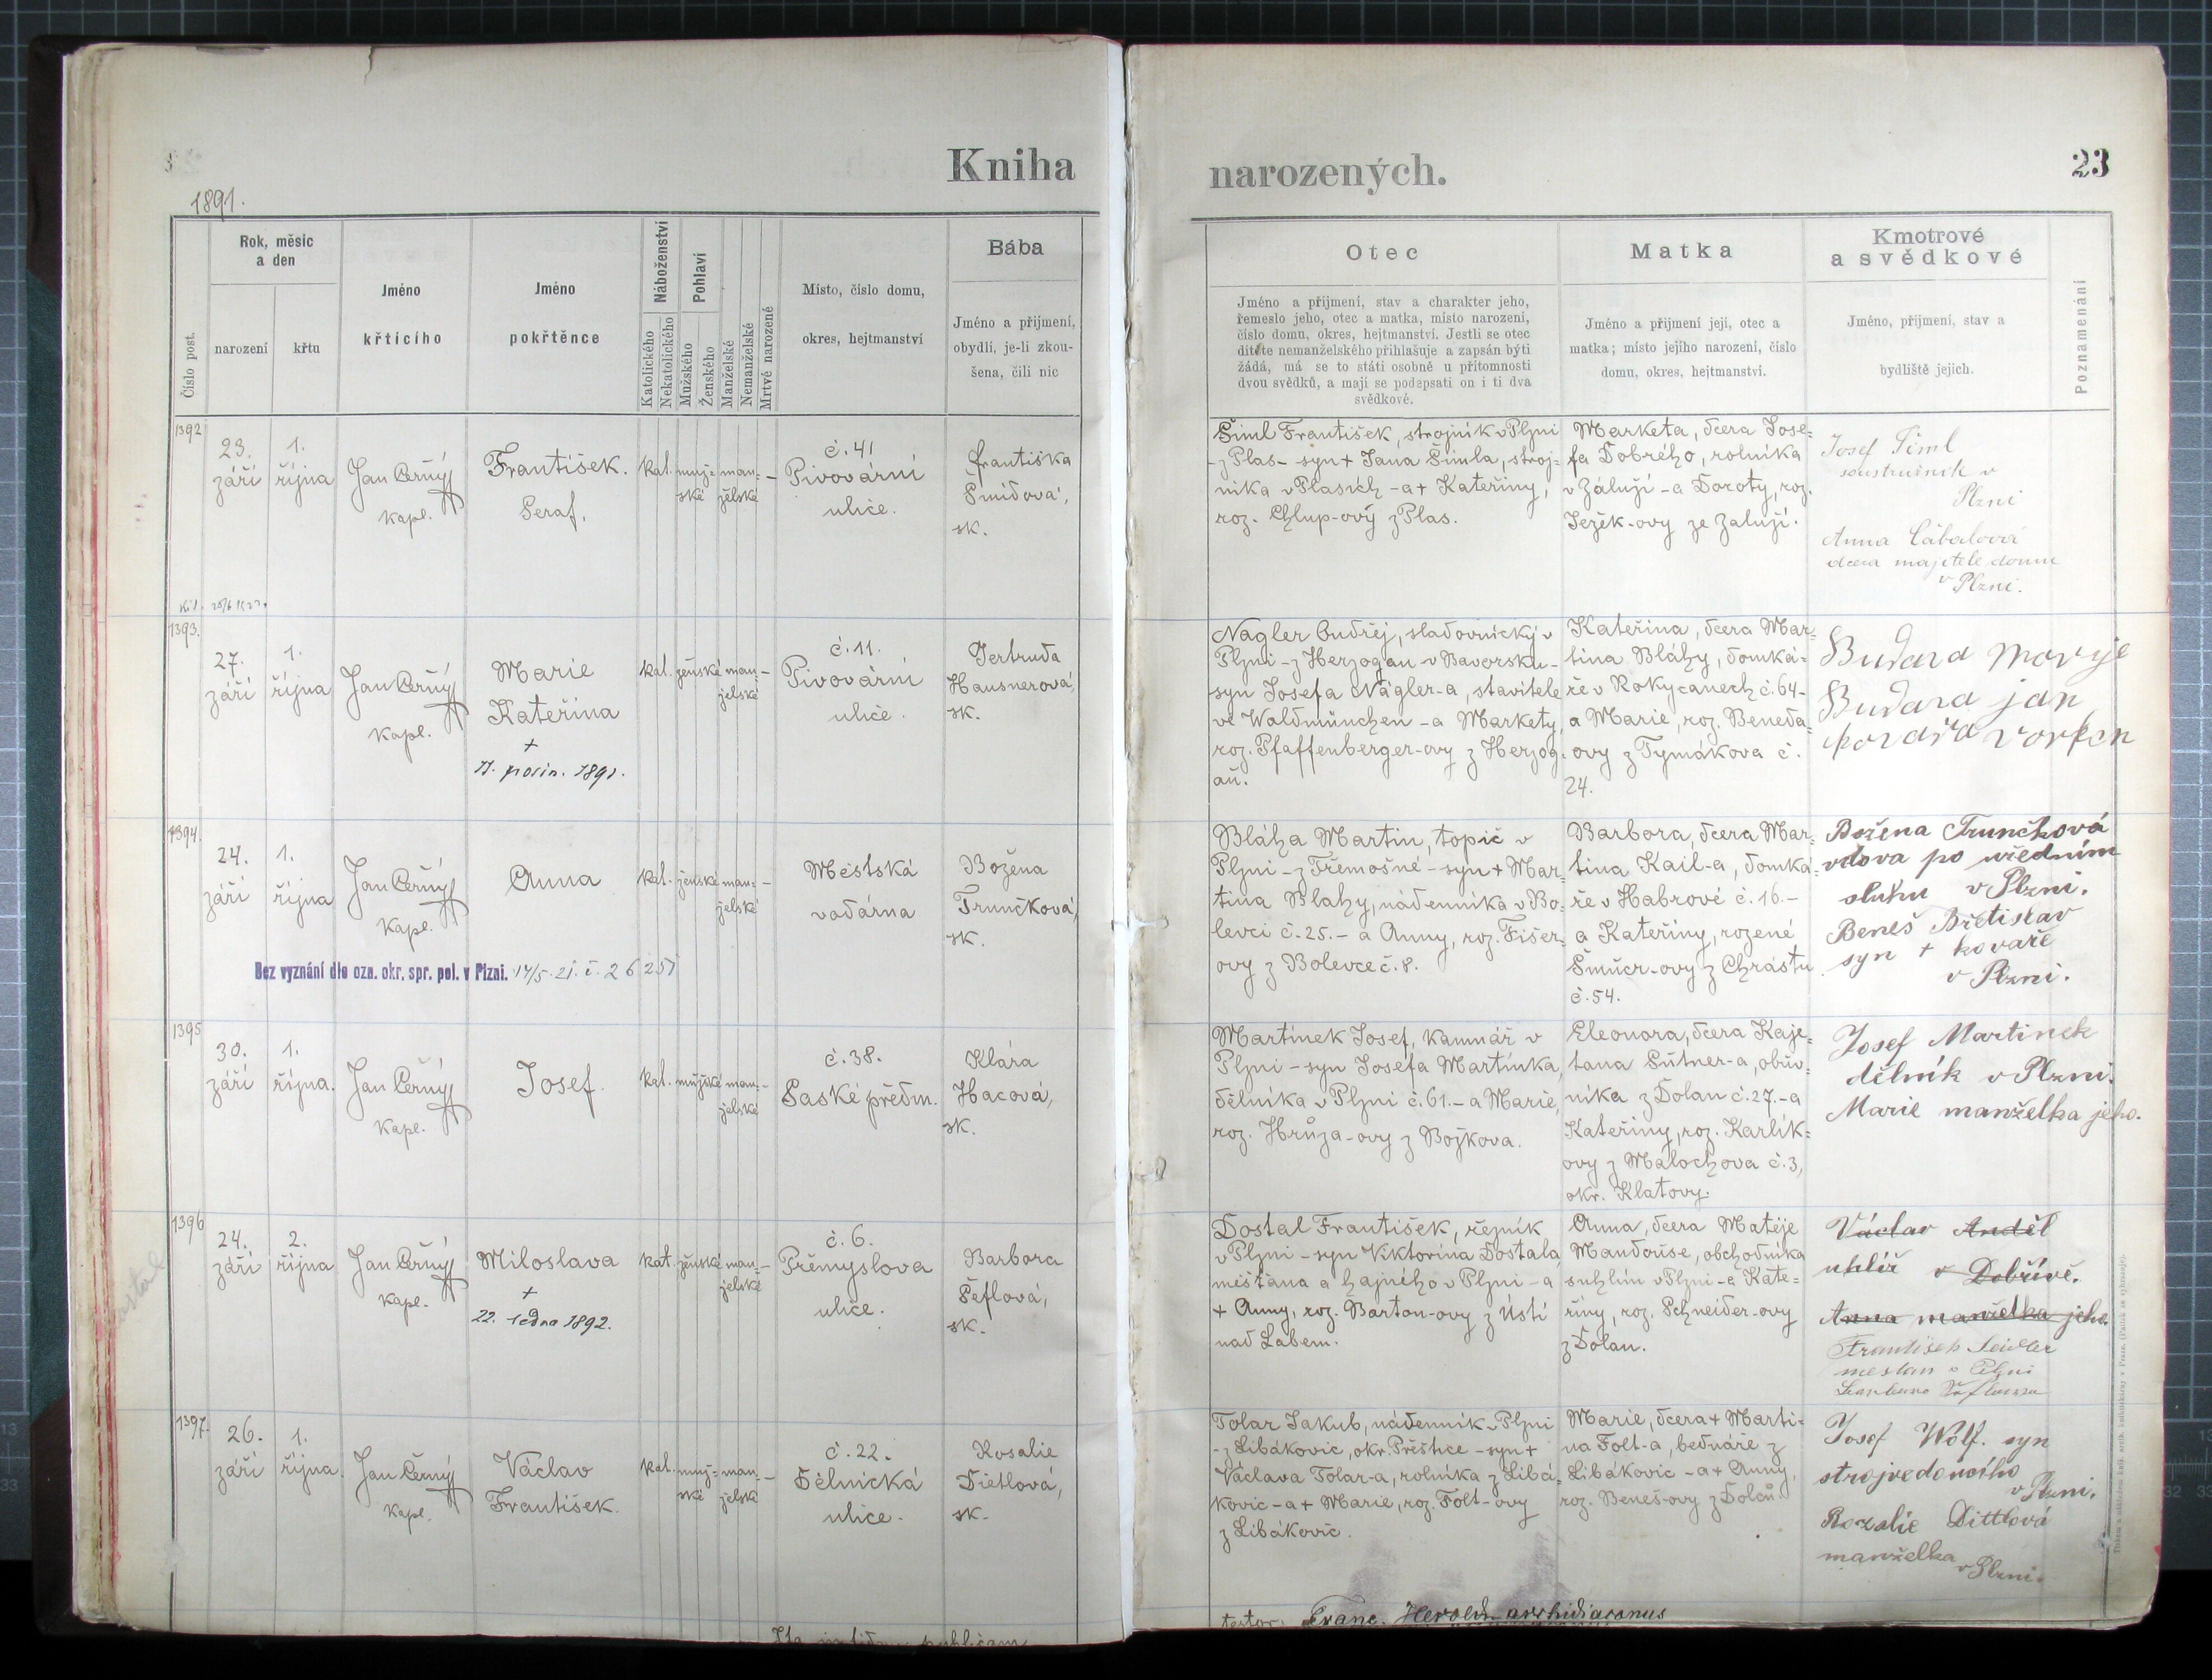 Kniha
narozených.
23
1891.
Číslo post.
Rok, měsíc
a den
narození
křtu
Jméno
křtícího
Jméno
pokřtěnce
Náboženství
Katolického
Nekatolického
Pohlaví
Mužského
Ženského
Manželské
Nemanželské
Mrtvě narozené
Místo, číslo domu,
okres, hejtmanství
Bába
Jméno a příjmení,
obydlí, je-li zkou-
šena, čili nic
Otec
Jméno a příjmení, stav a charakter jeho,
řemeslo jeho, otec a matka, místo narození,
číslo domu, okres, hejtmanství. Jestli se otec
dítěte nemanželského přihlašuje a zapsán býti
žádá, má se to státi osobně u přítomnosti
dvou svědků, a mají se podepsati on i ti dva
svědkové.
Matka
Jméno a příjmení její, otec a
matka; místo jejího narození, číslo
domu, okres, hejtmanství.
Kmotrové
a svědkové
Jméno, příjmení, stav a
bydliště jejich.
Poznamenání
1392
23.
září
1.
října
Jan Černý
kapl.
František.
Seraf.
kat.
muž-
ské
man-
želské
č. 41
Pivovární
ulice.
Františka
Šmídová,
sk.
Šiml František, strojník v Plzni
- z Plas - syn + Jana Šimla, stroj-
níka v Plasích - a + Kateřiny,
roz. Chlup-ový z Plas.
Marketa, dcera Jose-
fa Dobrého, rolníka
v Záluží - a Doroty, roz.
Ježek-ovy ze Záluží.
Josef Šiml
soustružník v
Plzni
Anna Cábalová
dcera majitele domu
v Plzni.
1393.
27.
září
1.
října
Jan Černý
kapl.
Marie
Kateřina
+
11. prosin. 1891.
kat.
ženské
man-
želské
č. 11.
Pivovární
ulice.
Gertruda
Hausnerová,
sk.
Nagler Ondřej, sladovnický v
Plzni - z Herzogau v Bavorsku -
syn Josefa Nágler-a, stavitele
ve Waldmünchen - a Markety,
roz. Pfaffenberger-ovy z Herzog-
au.
Kateřina, dcera Mar-
tina Bláhy, domká-
ře v Rokycanech č. 64 -
a Marie, roz. Beneda-
ovy z Tymákova č.
24.
Budara
Budara jan
1394.
24.
září
1.
října
Jan Černý
kapl.
Anna
kat.
ženské
man-
želské
Městská
vodárna
Božena
Trunčková,
sk.
Bez vyznání dle ozn. okr. spr. pol. v Plzni. 14/5 21. č. 26251
Bláha Martin, topič v
Plzni - z Třemošné - syn + Mar-
tina Blahy, nádenníka v Bo-
levci č. 25. - a Anny, roz. Fišer-
ovy z Bolevce č. 8.
Barbora, dcera Mar-
tina Kail-a, domká-
ře v Habrové č. 16. -
a Kateřiny, rozené
Šmücr-ovy z Chrástu
č. 54.
Božena Trunčková
vdova po úředním
sluhu v Plzni.
Beneš Břetislav
syn + kováře
v Plzni.
1395
30.
září
1.
října.
Jan Černý
kapl.
Josef.
kat.
mužské
man-
želské
č. 38.
Saské předm.
Klára
Hacová,
sk.
Martínek Josef, kamnář v
Plzni - syn Josefa Martínka,
dělníka v Plzni č. 61. - a Marie,
roz. Hrůza-ovy z Božkova.
Eleonora, dcera Kaje-
tana Sutner-a, obuv-
níka z Dolan č. 27. - a
Kateřiny, roz. Karlík-
ovy z Malochova č. 3,
okr. Klatovy.
Josef Martinek
dělník v Plzni.
Marie manželka jeho.
1396
24.
září
2.
října
Jan Černý
kapl.
Miloslava
+
22. ledna 1892.
kat.
ženské
man-
želské
č. 6.
Přemyslova
ulice.
Barbora
Šeflová,
sk.
Dostal František, řezník
v Plzni - syn Viktorina Dostala,
měšťana a hajného v Plzni - a
+ Anny, roz. Barton-ovy z Ústí
nad Labem.
Anna, dcera Matěje
Mandouse, obchodníka
s uhlím v Plzni - a Kate-
řiny, roz. Schneider-ovy
z Dolan.
Václav Anděl
uhlíř v Dobřívě.
Anna manželka jeho.
František Seidler
mešťan v Plzni
1397.
26.
září
1.
října.
Jan Černý
kapl.
Václav
František.
kat.
muž-
ské
man-
želské
č. 22.
Dělnická
ulice.
Rosalie
Dietlová,
sk.
Tolar Jakub, nádenník v Plzni
- z Libákovic, okr. Přeštice - syn +
Václava Tolar-a, rolníka z Libá-
kovic - a + Marie, roz. Folt-ovy
z Libákovic.
Marie, dcera + Marti-
na Folt-a, bednáře z
Libákovic - a + Anny,
roz. Beneš-ovy z Dolců.
Josef Wolf. syn
strojvedoucího
v Plzni.
Rozalie Dittlová
manželka
v Plzni.
testor: Franc. Herold archidiaconus